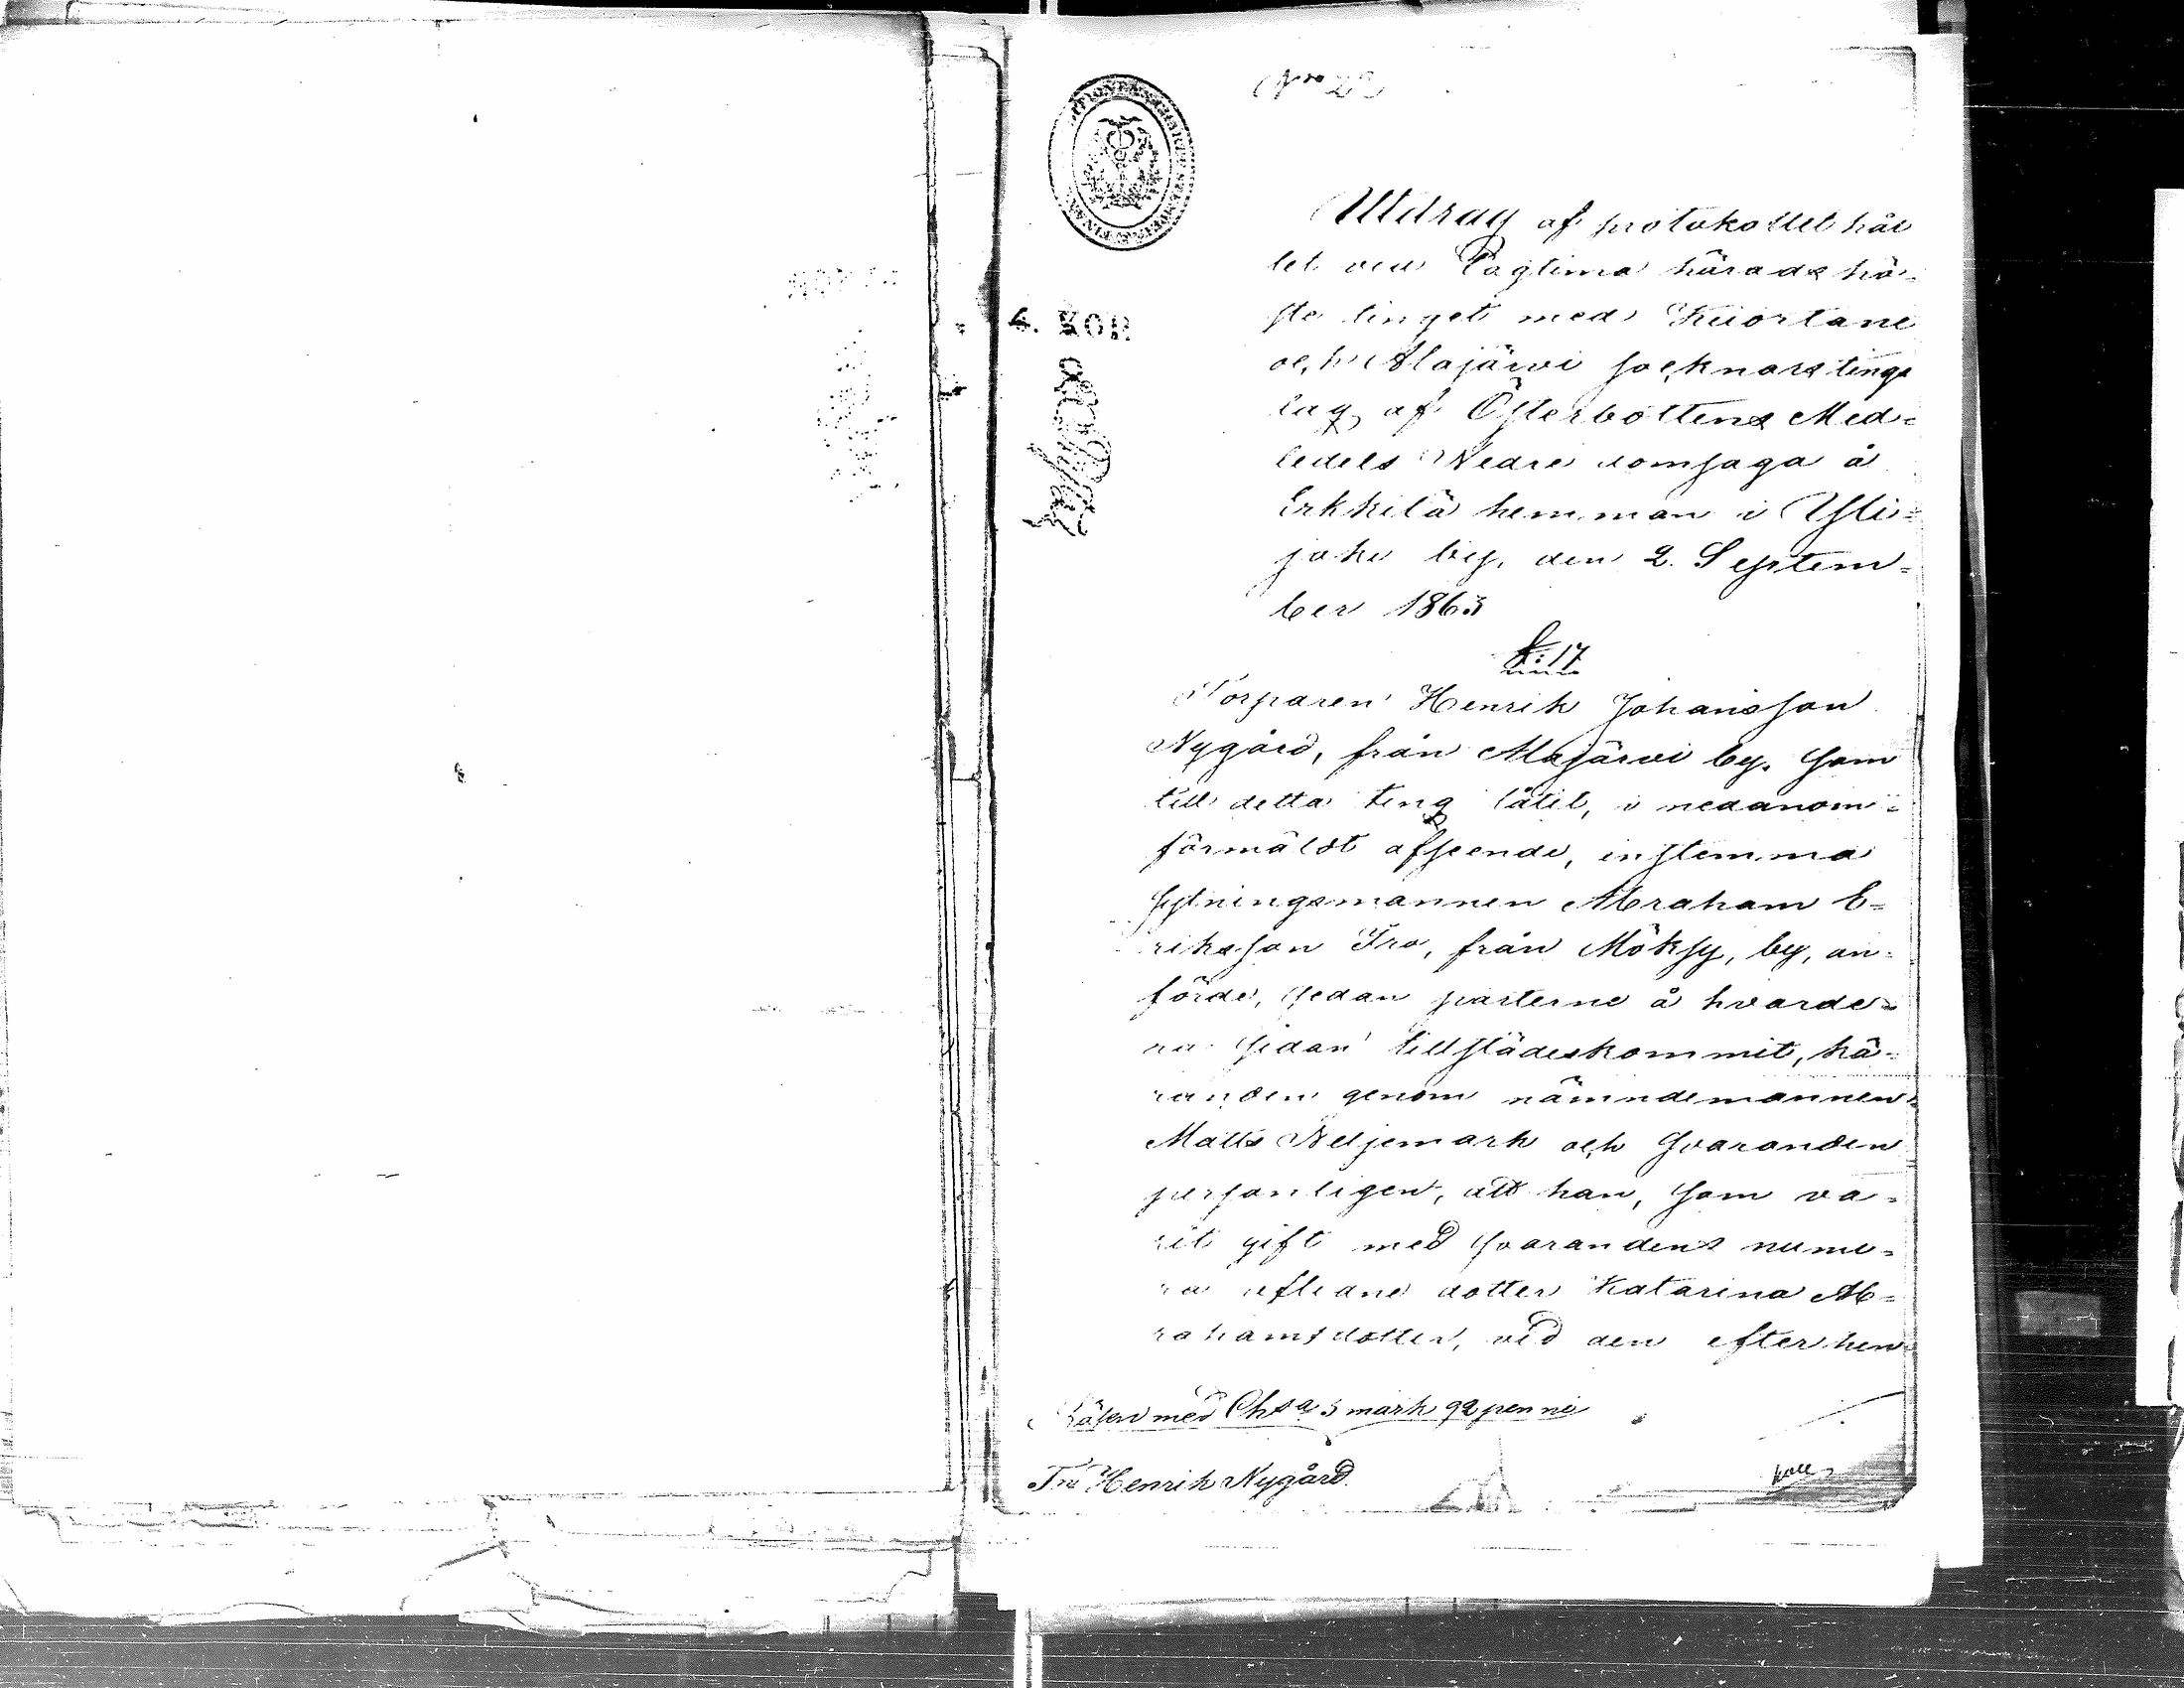 Utdrag af protokollet hål
let vid Lagtima härads hö-
ste tinget med Kuortane
och Alajärvi socknars tings
lag af Österbottens Med-
ledels Nedre domsaga å
Erkkilä hemman i Yli-
joki by, den 2. Septem-
ber 1863
§: 17
Torparen Henrik Johansson
Nygård, från Alajärvi by, som
till detta ting låtit, i nedanom-
förmäldt afseende, instemma
sytningsmannen Abraham E-
riksson Iro, från Möksy, by, an-
förde, sedan parterne å hvarde-
ra sidan tillstädeskommit, kä-
randen genom nämndemannen
Matts Neljemark och svaranden
personligen, att han, som va-
rit gift med svarandens nume-
ra aflidne dotter Katarina Ab-
rahamsdotter, vid den efter hen
Lösen med Ch s a 3 mark 92 penni
Tru Henrik Nygård.
4. KOP.